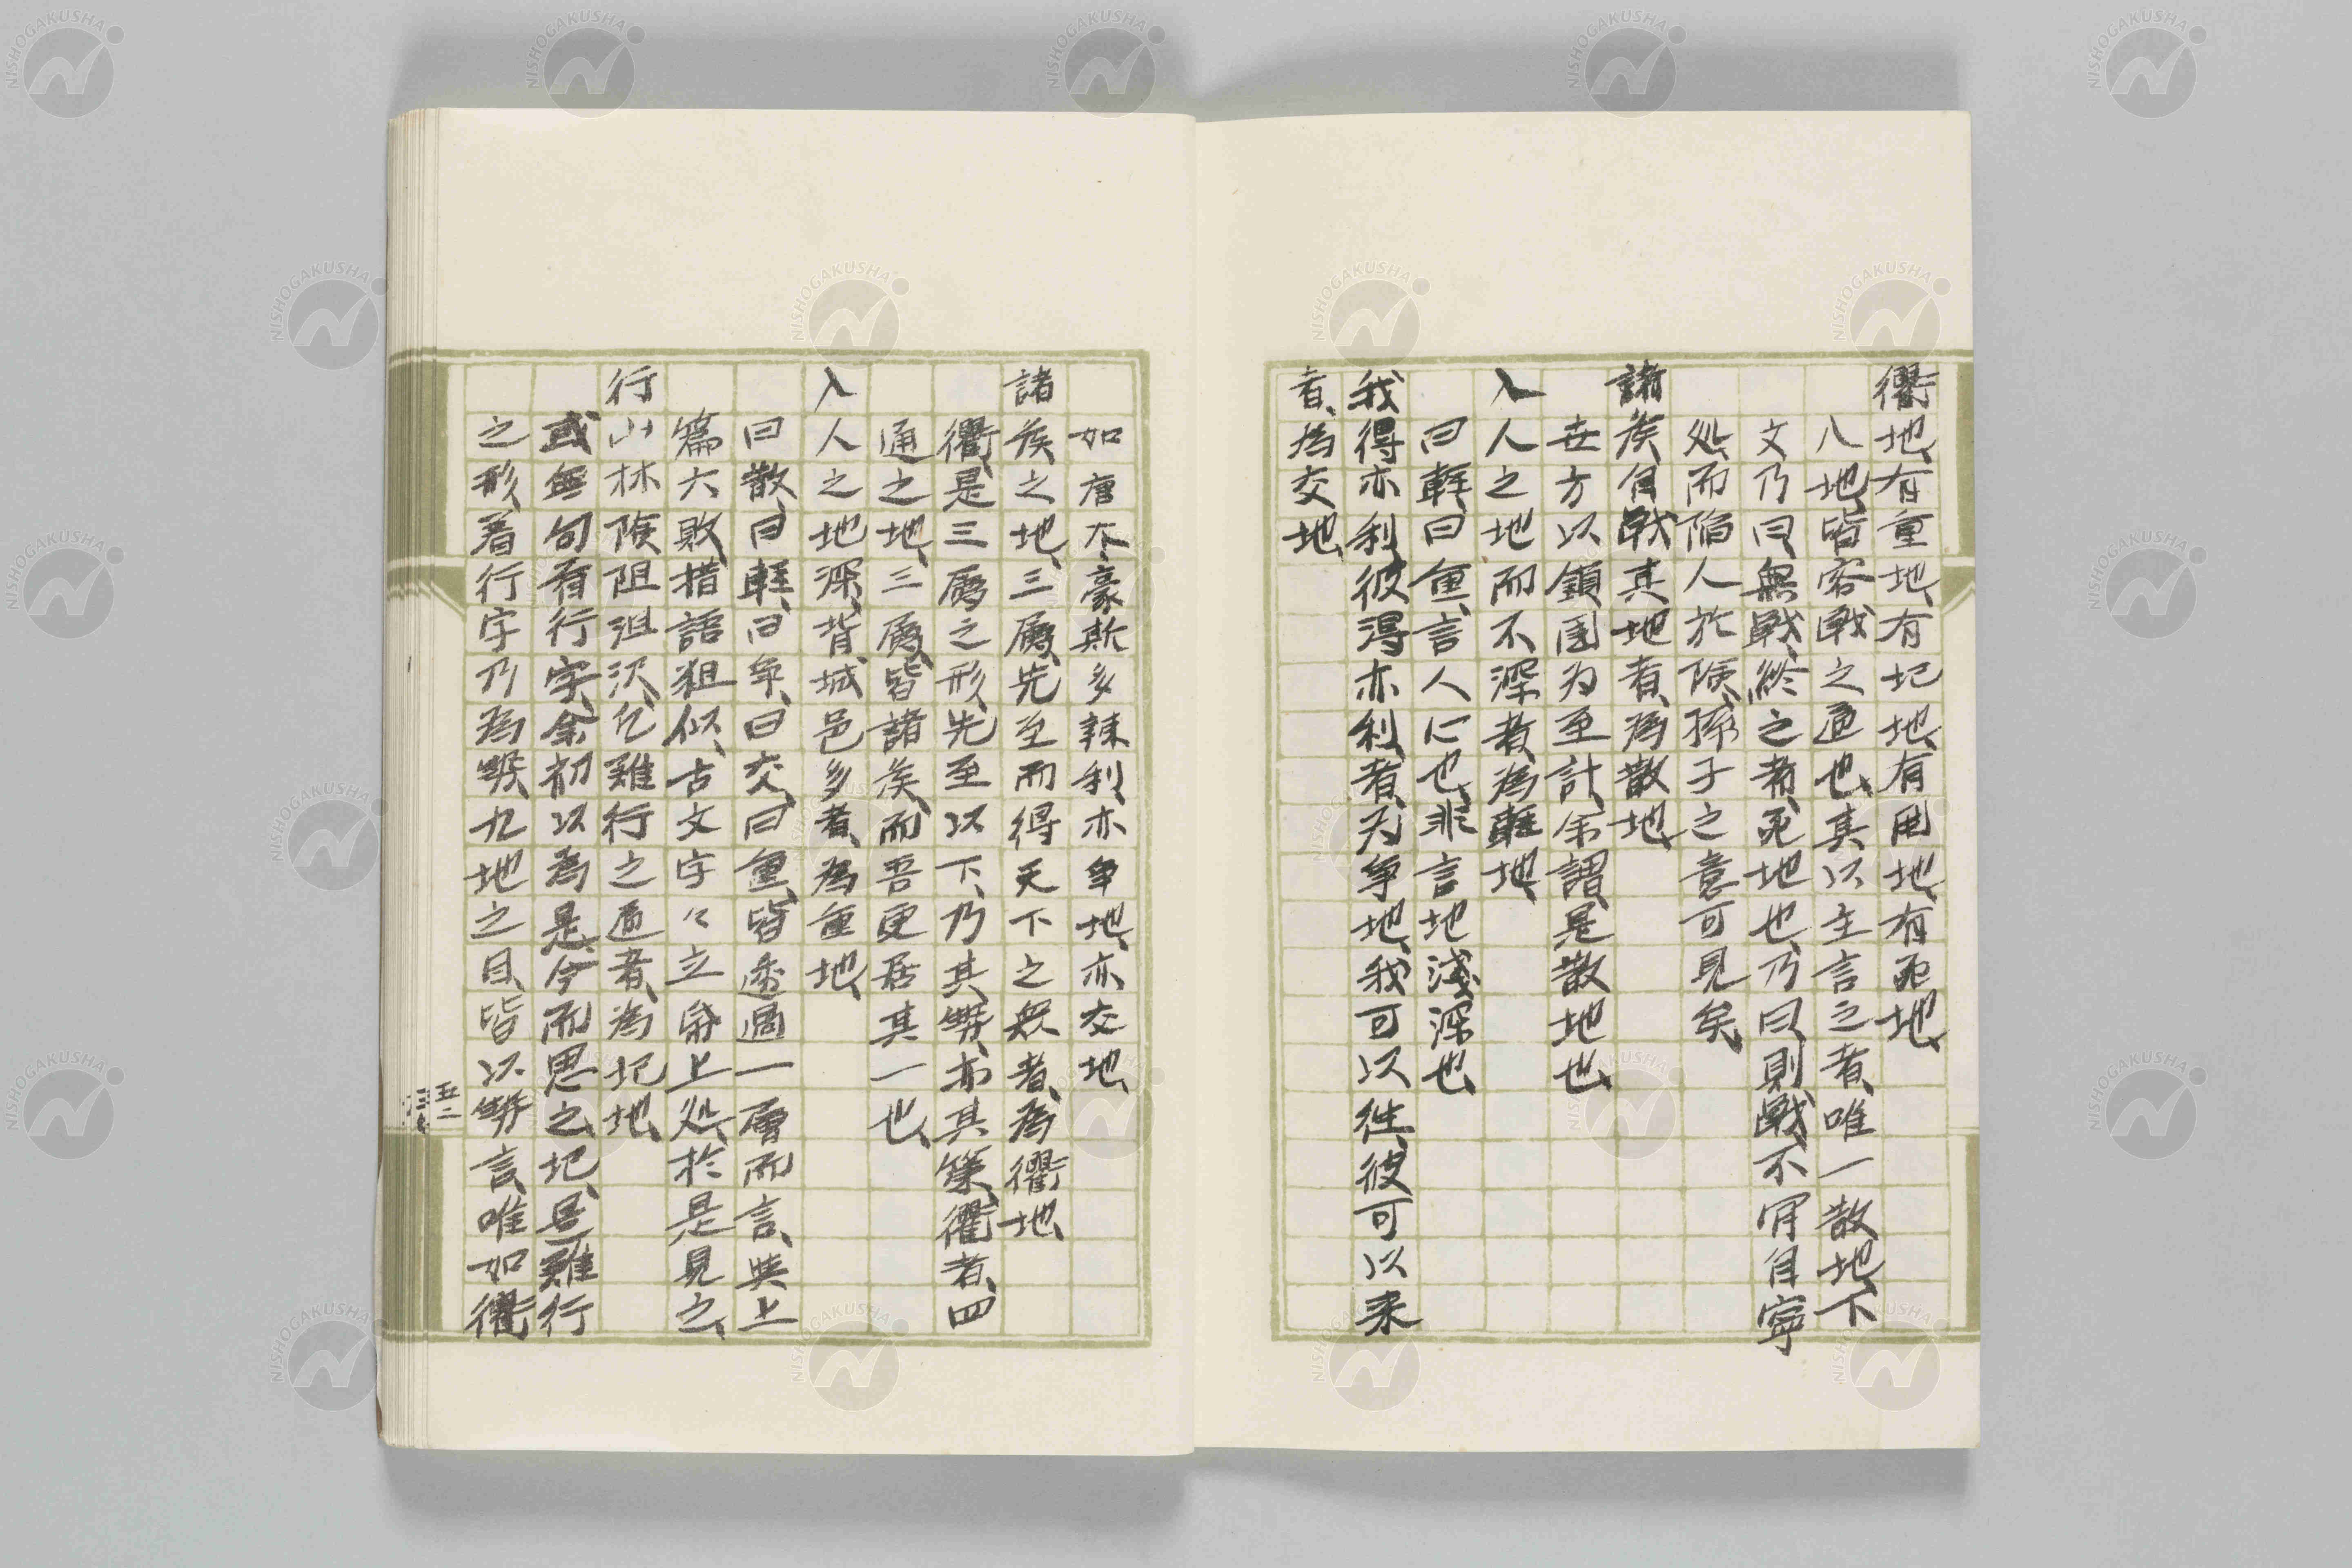 衢地、有重地、有圮地、有囲地、有死地、
八地、皆容戦之通也、其以主言之者、唯一散地、下
文乃曰、無戦、終之者、死地也、乃曰、則戦、不肯自寧
処、而陥人於険、孫子之意可見矣、
諸侯自戦其地者、為散地、
世方以鎖国为至計、余謂、是散地也、
入人之地而不深者、為軽地、
曰軽、曰重、言人心也、非言地浅深也、
我得亦利、彼得亦利者、为争地、我可以往、彼可以来
者、為交地、
如唐太、豪斯多辣利、亦争地、亦交地、
諸侯之地、三属、先至而得天下之衆者、為衢地、
衢、是三属之形、先至以下、乃其勢、亦其策、衢者、四
通之地、三属、皆諸侯、而吾更居其一也、
入人之地深、背城邑多者、為重地、
曰散、曰軽、曰争、曰交、曰重、皆透過一層而言、與上
篇六敗措語狙似、古文字々立角上処、於是見之、
行山林険阻沮沢、凡難行之道者、為圮地、
或無句首行字、余初以為是、今而思之、圮、是難行
之形、着行字乃為勢、九地之目、皆以勢言、唯如衢
五二